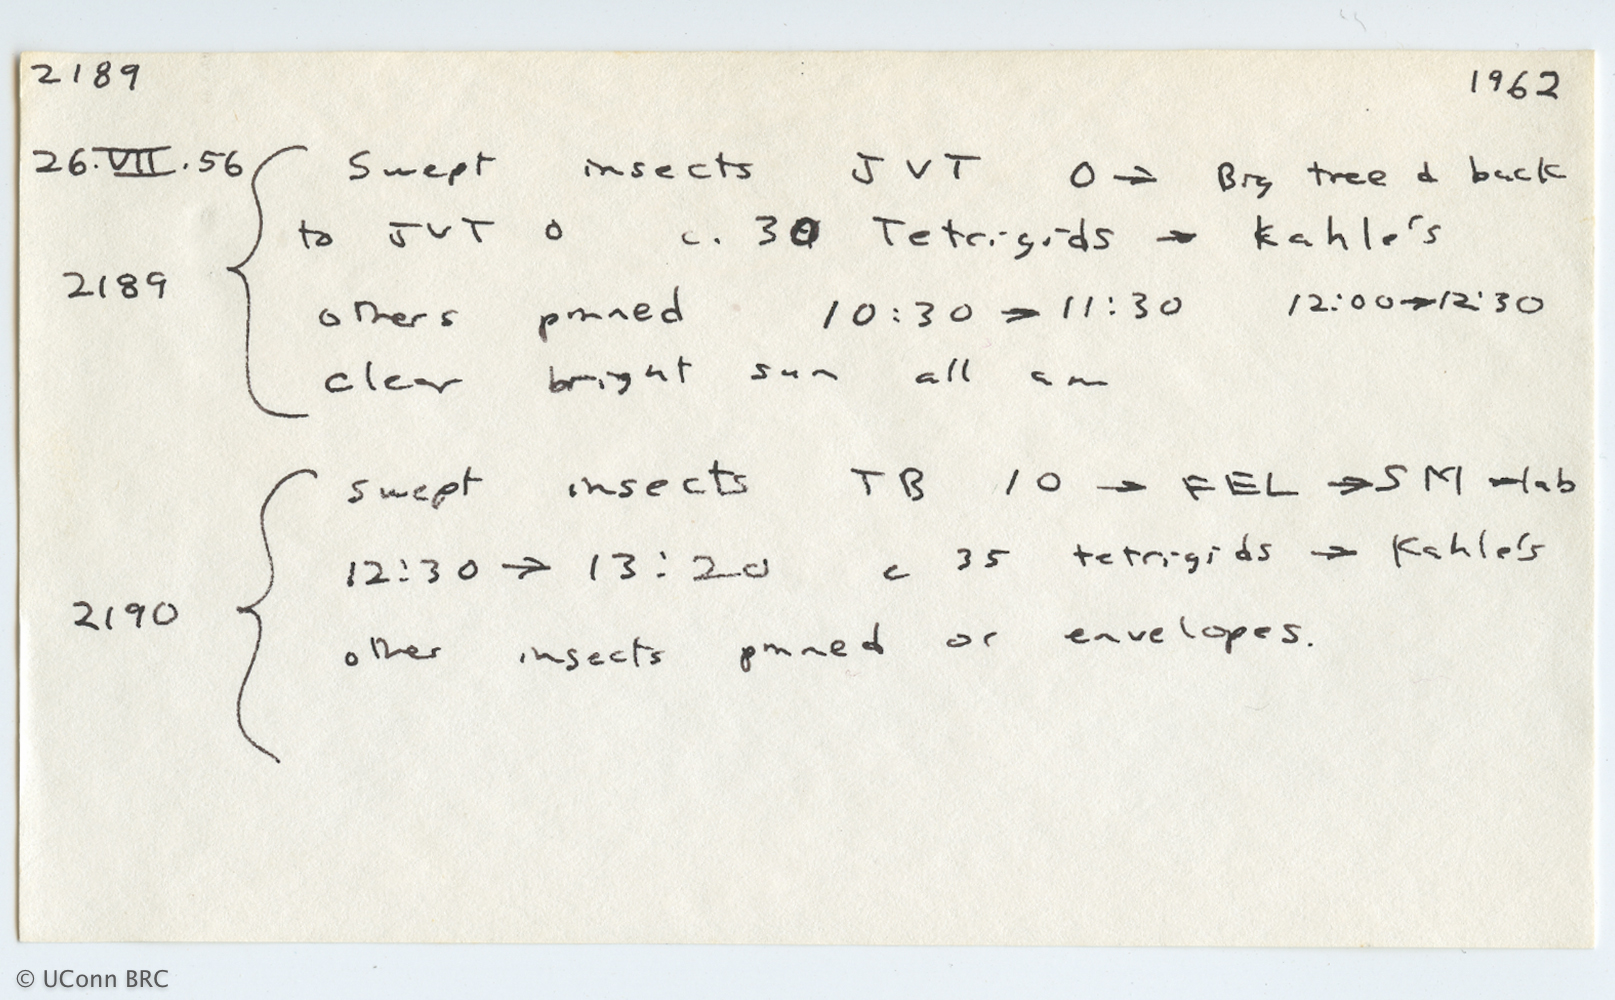 2189 1962
26.VII.56 Swept insects JVT 0 → Big tree & back
to JVT 0 c. 30 Tetrigids → Kahle's
2189
others pinned 10:30 → 11:30 12:00→12:30
clear bright sun all am
swept insects TB 10 → FEL → SM → lab
12:30 → 13:20 c 35 tetrigids → Kahle's
2190
other insects pinned or envelopes.
© UConn BRC